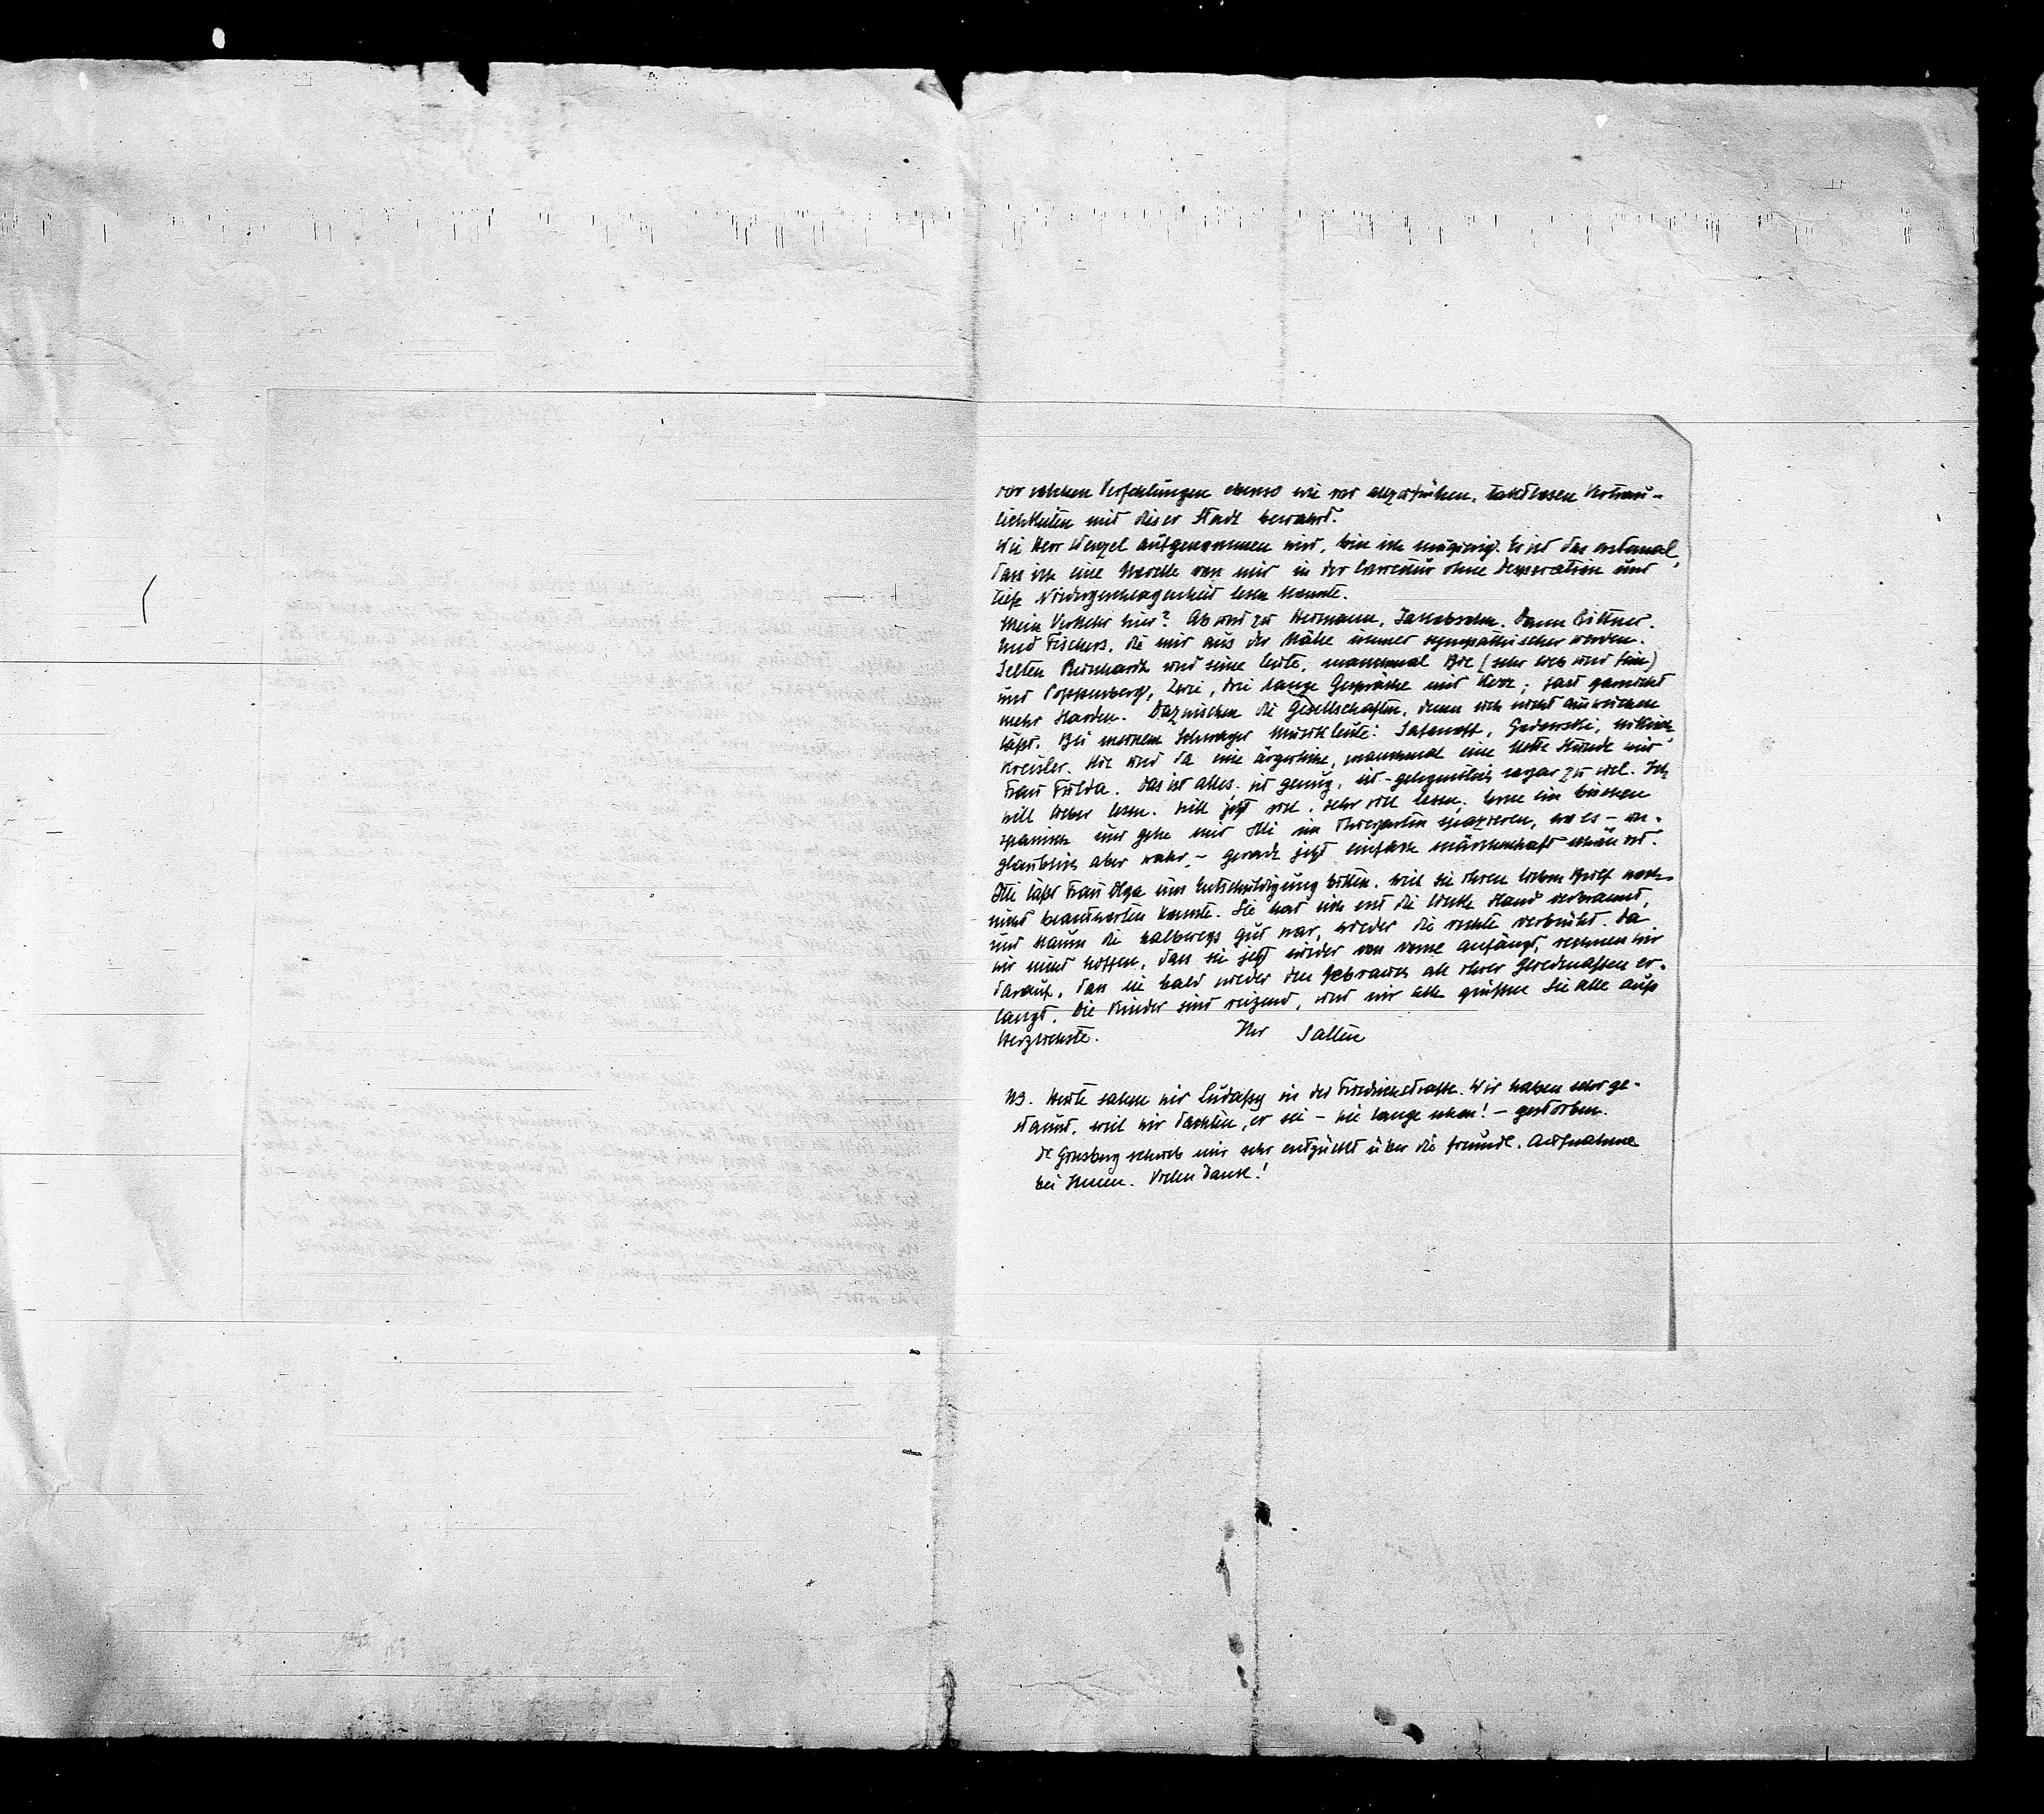 vor solchen Verfehlungen ebenso wie vor allzufrühen, taktlosen Vertrau-
lichkeiten mit dieser Stadt bewahrt.
Wie Herr Wenzel aufgenommen wird, bin ich neugierig. Es ist das erstemal,
dass ich eine Novelle von mir in der Correctur ohne Desperation und
tiefe Niedergeschlagenheit lesen konnte.
Mein Verkehr hier? Ab und zu Hermann, Jakobsohn. Dann Bittner.
Und Fischers, die mir aus der Nähe immer sympathischer werden.
Selten Reinhardt und seine Leute, manchmal Bie (sehr lieb und fein)
und Poppenberg, zwei, drei lange Gespräche mit Kerr; fast garnicht
mehr Harden. Dazwischen die Gesellschaften, denen sich nicht ausweichen
läßt. Bei meinem Schwager Musikleute: Safonoff, Godowski, Nikisch,
Kreisler. Hie und da eine ärgerliche, manchmal eine nette Stunde mit
Frau Fulda. Das ist alles, ist genug, ist – gelegentlich sogar zu viel. Ich
will lieber lesen. Will jetzt viel, sehr viel lesen, lerne ein bischen
spanisch und gehe mit Otti im Thiergarten spazieren, wo es – un-
glaublich aber wahr – gerade jetzt einfach märchenhaft schön ist.
Otti läßt Frau Olga um Entschuldigung bitten, weil sie ihren lieben Brief noch
nicht beantworten konnte. Sie hat sich erst die linke Hand verbrannt,
und kaum die halbwegs gut war, wieder die rechte verbrüht. Da
wir nicht hoffen, dass sie jetzt wieder von vorne anfängt, rechnen wir
darauf, dass sie bald wieder den Gebrauch all ihrer Gliedmaßen er-
langt. Die Kinder sind reizend, und wir alle grüßen Sie alle aufs
herzlichste. Ihr Salten
NB. Heute sahen wir Ludaßy in der Friedrichstraße. Wir haben sehr ge-
staunt, weil wir dachten, er sei – wie lange schon! – gestorben.
Dr Ginsberg schrieb mir sehr entzückt über die freundl. Aufnahme
bei Ihnen. Vielen Dank!